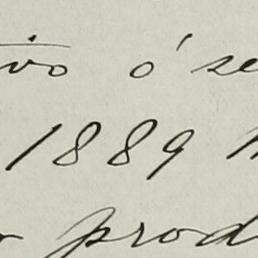 ivo ó se
1889
prod